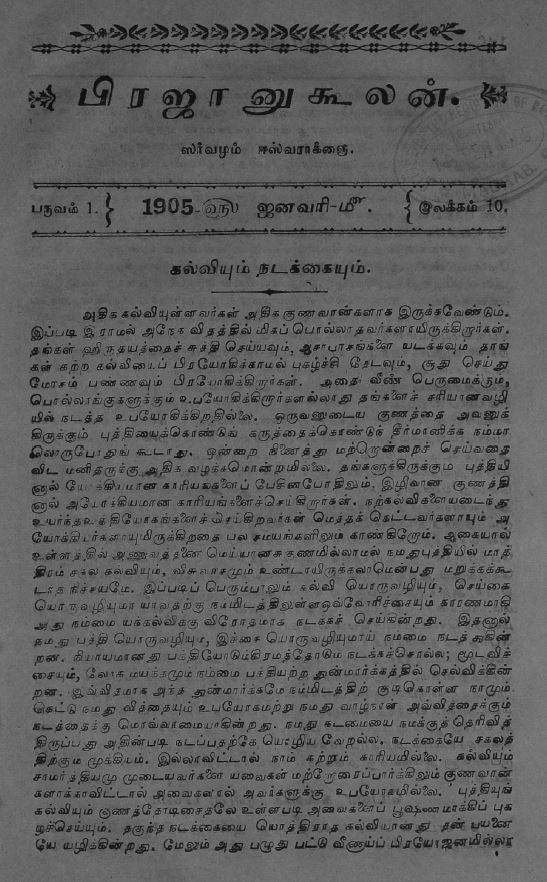 பிரஜானுகூலன்.
ஸர்வமும் ஈஸ்வராக்ஞை.
பருவம் 1. 1905-௵ ஜனவரி-௴. இலக்கம் 10.
கல்வியும் நடக்கையும்.
அதிக கல்வியுள்ளவர்கள் அதிக குணவான்களாக இருக்கவேண்டும்.
இப்படி இராமல் அநேக விதத்தில் மிகப் பொல்லாதவர்களாயிருக்கிறார்கள்.
தங்கள் ஹிருதயத்தைச் சுத்தி செய்யவும், ஆசாபாசங்களை யடக்கவும் தாங்
கள் கற்ற கல்வியைப் பிரயோகிக்காமல் புகழ்ச்சி தேடவும், சூது செய்து
மோசம் பண்ணவும் பிரயோகிக்கிறார்கள். அதை வீண் பெருமைக்கும்,
பொல்லாங்குகளுக்கும் உபயோகிக்கிறார்களல்லாது தங்களைச் சரியானவழி
யில் நடத்த உபயோகிக்கிறதில்லை. ஒருவனுடைய குணத்தை அவனுக்
கிருக்கும் புத்தியைக்கொண்டுங் கருத்தைக்கொண்டுந் தீர்மானிக்க நம்மா
லொருபோதுங் கூடாது. ஒன்றை நினைத்து மற்றொன்றைச் செய்வதை
விட மனிதருக்கு அதிக வழக்கமொன்றுமில்லை. தங்களுக்கிருக்கும் புத்தியி
னால் யோக்கியமான காரியங்களைப் பேசினபோதிலும், இழிவான குணத்தி
னால் அயோக்கியமான காரியங்களைச்செய்கிறார்கள். நற்கல்விகளையடைந்து
உயர்ந்தஉத்தியோகங்களைச் செய்கிறவர்கள் மெத்தக் கெட்டவர்களாயும் அ
யோக்கியர்களாயுமிருக்கிறதை பல சமயங்களிலும் காண்கிறோம். ஆகையால்
உள்ளத்தில் அணுவத்தனை மெய்யானசுகுணமில்லாமல் நமதுபுத்தியில் மாத்
திரம் சகல கல்வியும், விசுவாசமும் உண்டாயிருக்கலாமென்பது மறுக்கக்கூ
டாத நிச்சயமே. இப்படிப் பெரும்பாலும் கல்வி யொருவழியும், செய்கை
யொருவழியுமா யாவதற்கு நம்மிடத்திலுள்ளஒவ்வோரிச்சையும் காரணமாகி
அது நம்மை யக்கல்விக்கு விரோதமாக நடக்கச் செய்கின்றது. இதனால்
நமது புத்தி யொருவழியும், இச்சை யொருவழியுமாய் நம்மை நடத்துகின்
றன. நியாயமானது பக்தியோடும்கிரமத்தோடும் நடக்கச்சொல்ல; மூடவிச்
சையும், லோக மயக்கமும் நம்மை பக்தியற்ற துன்மார்க்கத்தில் செல்விக்கின்
றன. இவ்விதமாக அந்த துன்மார்க்கமே நம்மிடத்திற் குடிகொள்ள நாமும்
கெட்டு நமது வித்தையும் உபயோகமற்று நமது வாழ்நாள் அவ்வித்தைக்கும்
நடத்தைக்கு மொவ்வாமையாகின்றது. நமது கடமையை நமக்குத் தெரிவித்
திருப்பது அதின்படி நடப்பதற்கே யொழிய வேறல்ல. நடக்கையே சகலத்
திற்கும் முக்கியம். இல்லாவிட்டால் நாம் கற்றும் காரியமில்லை. கல்வியும்
சாமர்த்தியமு முடையவர்களை யவைகள் மற்றோரைப்பார்க்கிலும் குணவான்
களாக்காவிட்டால் அவைகளால் அவர்களுக்கு உபயோகமில்லை. புத்தியுங்
கல்வியும் குணத்தோடிசைதலே உள்ளபடி அவைகளைப் பூஷணமாக்கிப் புக
ழச்செய்யும். தகுந்த நடக்கையை யொத்திராத கல்வியானது தன் பயனை
யே யழிக்கின்றது. மேலும் அது பழுது பட்டு வீணாய்ப் பிரயோஜனமில்லா